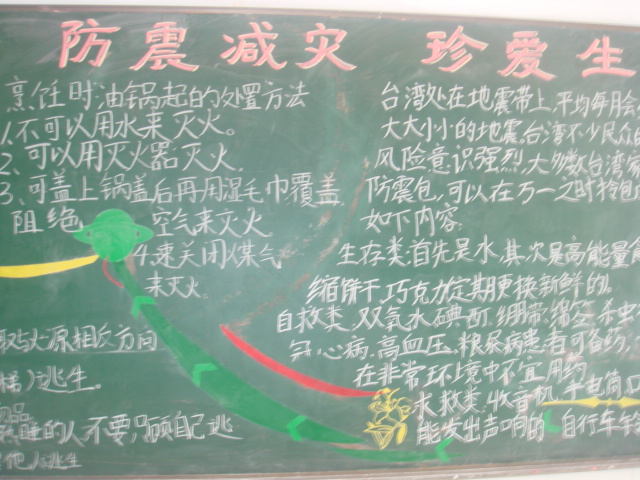 防震减灾 珍爱生
烹饪时油锅起的处置方法
1.不可以用水来灭火。
2.可以用灭火器灭火.
3.可盖上锅盖后再用湿毛巾覆盖,
阻绝 空气来灭火
4.速关闭煤气
来灭火。
火原相反方向
逃生。
的人,不要只顾自己逃
他人逃生
台湾处在地震带上,平均每月会
大大小小的地震,台湾不少民众
风险意识强烈,大多数台湾
防震包,可以在万一之时拎包
如下内容.
生存类:首先是水,其次是高能量
缩饼干,巧克力定期更换新鲜的.
自救类,双氧水碘酊.绷带.
心病,高血压,糖尿病患者可备药,
在非常环境中不宜用约.
求救类.收音机
能发出声响的 自行车